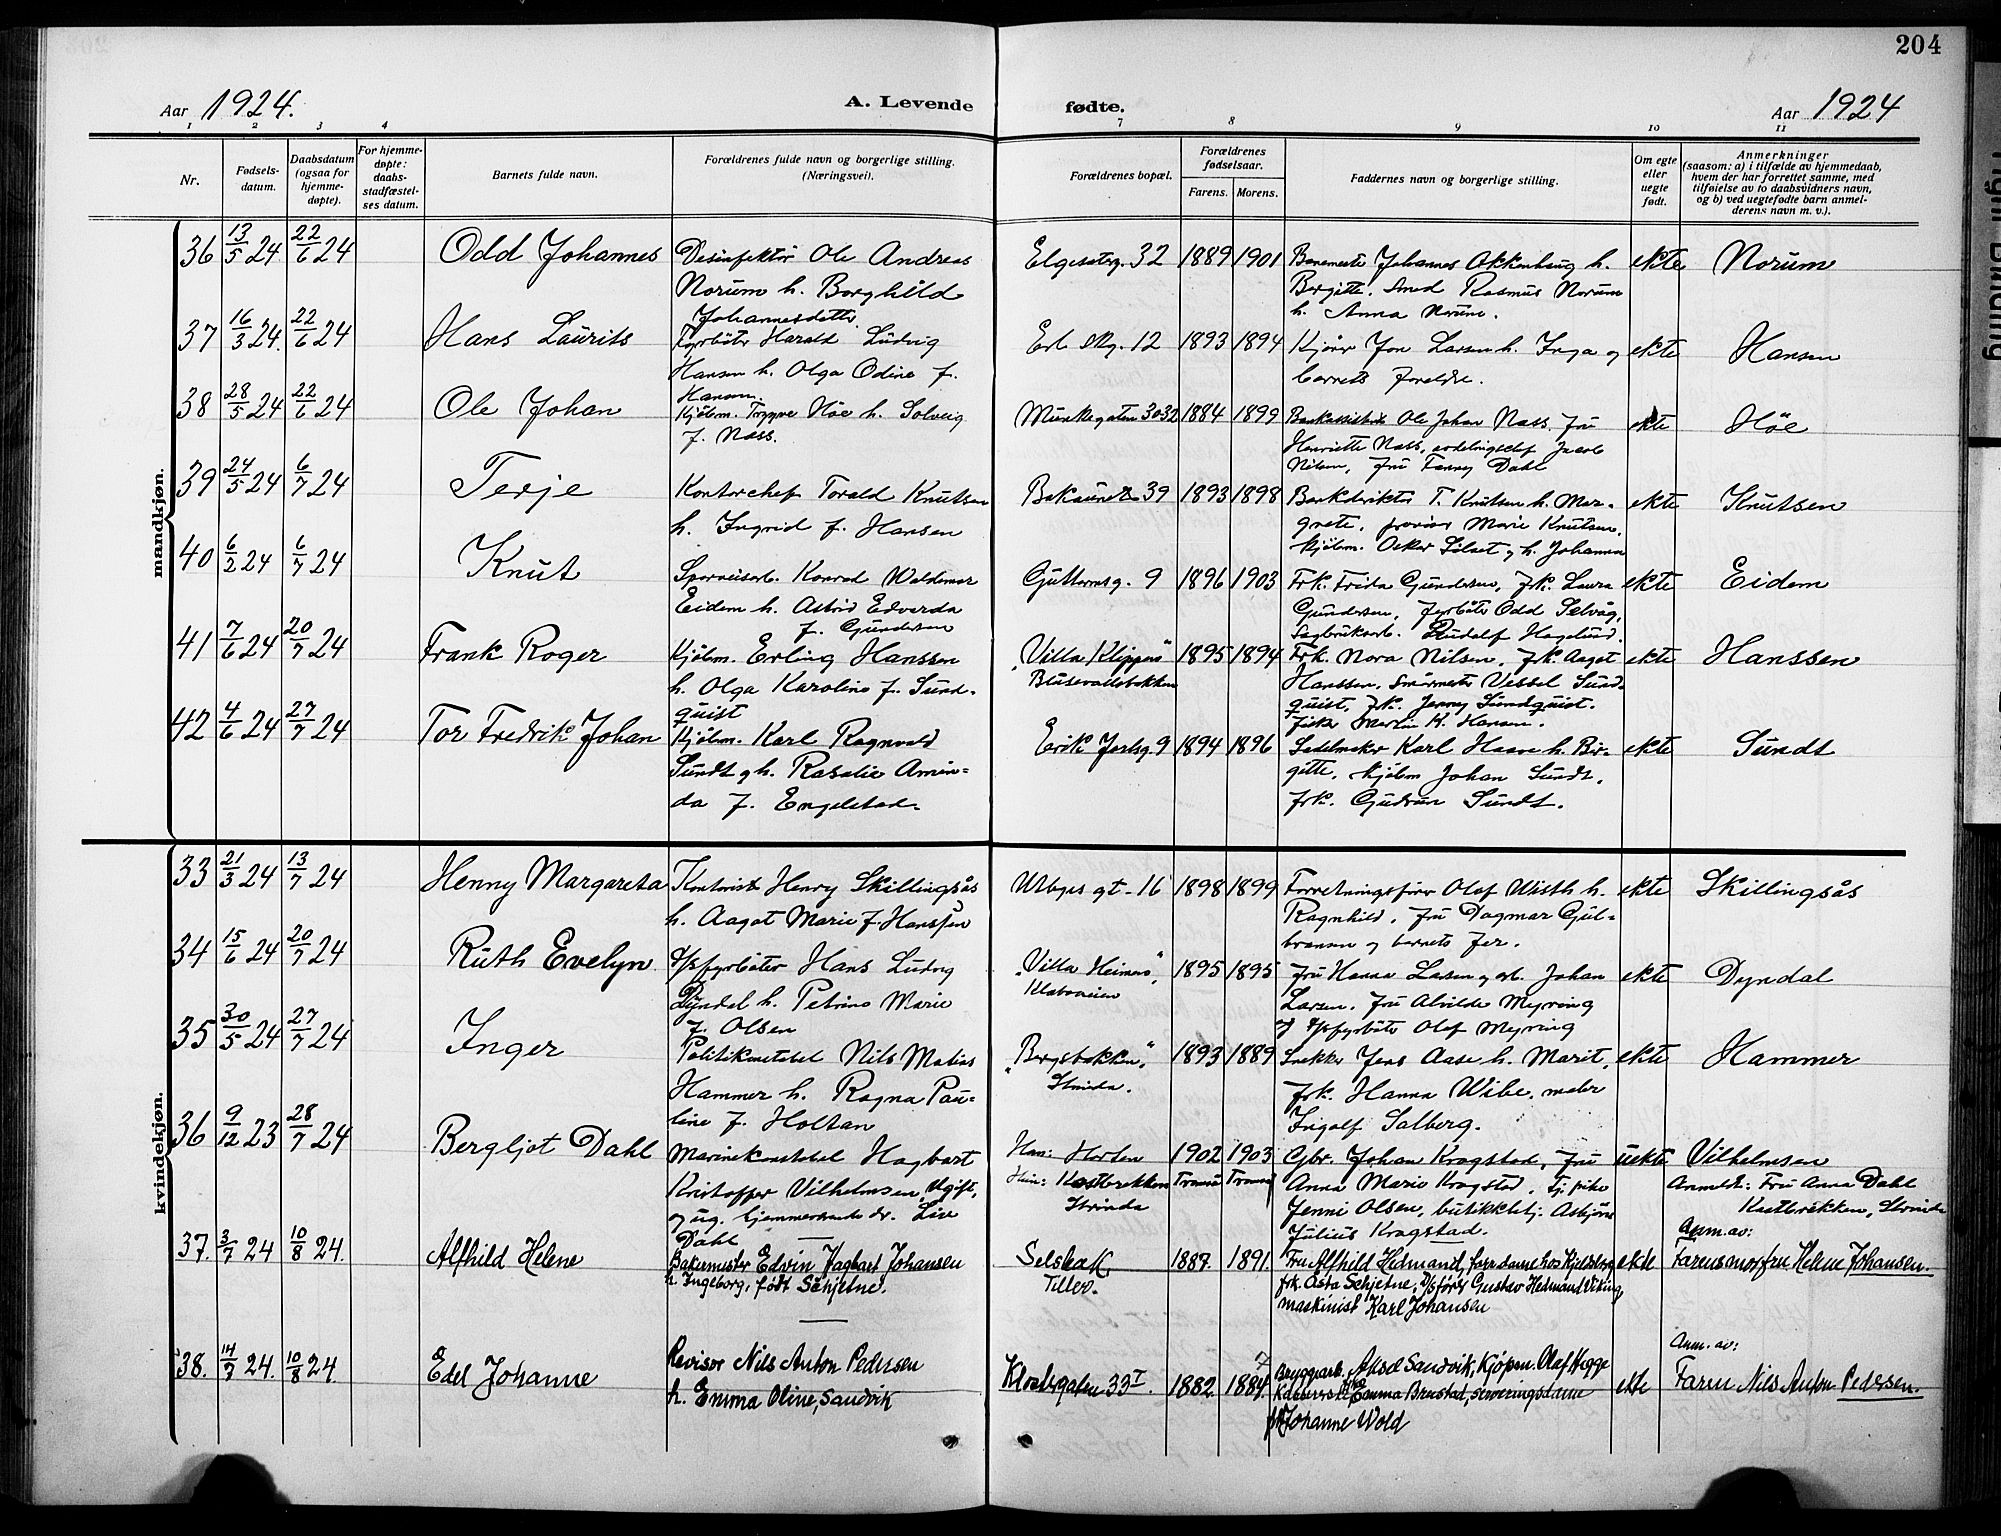 204
Aar 1924.
A. Levende fødte.
Aar 1924
1 2 3 4 7 8 9 10 11
Nr.
Fødsels-
datum.
Daabsdatum
(ogsaa for
hjemme-
døpte).
For hjemme-
døpte:
daabs-
stadfæstel-
ses datum.
Barnets fulde navn.
Forældrenes fulde navn og borgerlige stilling.
(Næringsvei).
Forældrenes bopæl.
Forældrenes
fødselsaar.
Farens. Morens.
Faddernes navn og borgerlige stilling.
Om egte
eller
uegte
født.
Anmerkninger
(saasom: a) i tilfælde av hjemmedaab,
hvem der har forrettet samme, med
tilføielse av to daabsvidners navn,
og b) ved uegtefødte barn anmel-
derens navn m. v.).
mandkjøn.
36 13/5 24 22/6 24 Odd Johannes
Desinfektör Ole Andreas
Norum h. Borghild
Johannesdatter
Elgesetrg. 32 1889 1901
Banemester Johannes Okkenhaug h.
Bergitte. Smed Rasmus Norum
h. Anna Norum.
ekte Norum
37 16/3 24. 22/6 24 Hans Laurits
Fyrböter Harald Ludvig
Hansen h. Olga Odine f.
Hansen.
12 1893 1894
Kjörer Jon Larsen h. Inga og
barnets foreldre.
ekte Hansen
38 28/5 24 22/6 24 Ole Johan
Kjöbm. Trygve Höe h. Solveig
f. Næss.
Munkegaten 30 32 1884 1899
Ole Johan Næss. Fru
Henriette Næss, avdelingschef Jacob
Nilsen, Fru Fanny Dahl
ekte Höe
39 24/5 24 6/7 24 Terje
Kontorchef Torald Knutsen
h. Ingrid f. Hansen
Bakaunet 39 1893 1898
Bankdirektör T. Knutsen h. Mar-
grete, provisor Marie Knutsen,
kjöbm. Oskar Lilset og h. Johanna
ekte Knutsen
40 6/2 24 6/7 24 Knut
Sporveisarb. Konrad Waldemar
Eidem h. Astrid Edvarda
f. Gundersen
Guttormsg. 9 1896 1903
Frk. Frida Gundersen, Frk. Laura
Gundersen, fyrböter Odd Selvåg,
Sagbruksarb. Rudolf Hagelund.
ekte Eidem
41 7/6 24 20/7 24 Frank Roger
Kjöbm. Erling Hanssen
h. Olga Karoline f. Sund-
quist
"Villa Klippen"
Blusevollsbakken
1895 1894
Frk. Nora Nilsen, Frk. Aagot
Hanssen, Smörmester Vessel Sund-
quist, Frk. Jenny Sundquist.
fisker Martin K. Hansen.
ekte Hanssen
42 4/6 24 27/7 24 Tor Fredrik Johan
Kjöbm. Karl Ragnvald
Sundt og h. Rosalie Amin-
da f. Engelstad.
Erik Jarlsg. 9 1894 1896
Sadelmaker Karl Haave h. Bir-
gitte, kjöbm Johan Sundt,
frk. Gudrun Sundt.
ekte Sundt
kvindekjøn.
33 21/3 24 13/7 24 Henny Margareta
Kontorist Henry Skillingsås
h. Aagot Marie f. Hanssen
Udbyes gt - 16 1898 1899
Forretningsförer Olaf Wisth h.
Ragnhild, fru Dagmar Gul-
bransen og barnets for.
ekte Skillingsås
34 15/6 24 20/7 24 Ruth Evelyn
D/sfyrböter Hans Ludvig
Dyndal h. Petrine Marie
f. Olsen
"Villa Heimero",
Klæboveien
1895 1895
Fru Hanna Larsen og arb. Johan
Larsen. Fru Alvilde Myrving
og D/sfyrböter Olaf Myrving
ekte Dyndal
35 30/5 24 27/7 24 Inger
Politikonstabel Nils Matias
Hammer h. Ragna Pau-
line f. Holtan
"Bergsbakken,"
Strinda.
1893 1889
Snekker Jens Aase h. Marit,
frk. Hanna Wibe, maler
Ingolf Salberg.
ekte Hammer
36 9/12 23 28/7 24 Bergljot Dahl
Marinekonstabel Hagbart
Kristoffer Vilhelmsen, Ugift,
og ug. hjemmeværende dr. Liv
Dahl
Han: Horten
Hun: Kastbrekken
Strinda
1902 1903
Tromsö Tromsö
Gbr. Johan Kragstad, Fru
Anna Marie Kragstad. Tj. pike
Jenni Olsen, butikktj. Asbjörn
Julius Kragstad.
uekte Vilhelmsen
Anmeldt: Fru Anna Dahl
Kastbrekken, Strinda
37. 3/7 24 10/8 24. Alfhild Helene
Bakermester Edvin Hagbart Johansen
h. Ingeborg, født Schjetne.
Selsbak
Tiller.
1887. 1891.
Fru Alfhild Hedmand, forr.dame hos Kjeldsberg
frk. Asta Schjetne, D/sfører Gustav Hedmand Viking,
maskinist Karl Johansen
ekte
Anm. av:
Farens mor, fru Helene Johansen.
38. 14/7 24. 10/8 24. Edel Johanne
Revisor Nils Anton Pedersen
h. Emma Oline, Sandvik
Klostergaten 33 I. 1882. 1884.
Bryggearb. Aksel Sandvik, Kjøpm. Olaf Hegge
Emma Brustad, serveringsdame
frk. Johanne Wold
ekte
Anm. av:
Faren Nils Anton Pedersen.